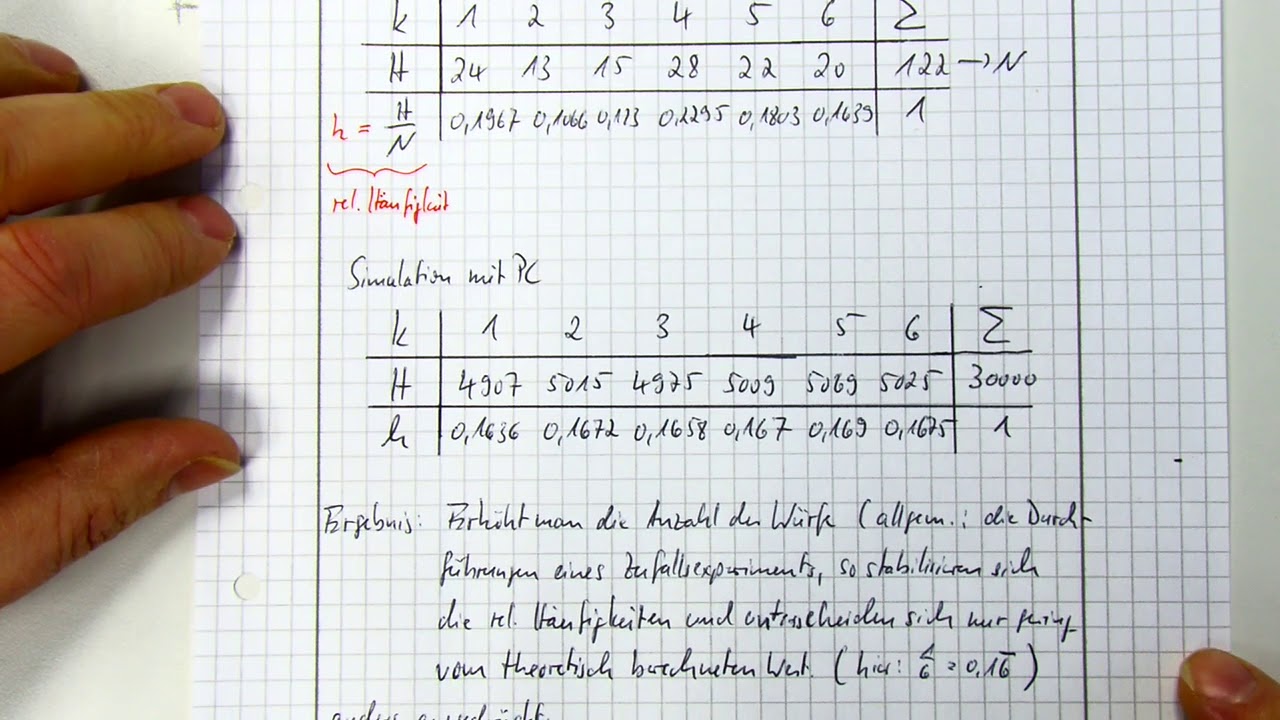 k 1 2 3 4 5 6 Σ
H 24 13 15 28 22 20 122 → N
h = H/N 0,1967 0,1066 0,123 0,2295 0,1803 0,1639 1
rel. Häufigkeit
Simulation mit PC
k 1 2 3 4 5 6 Σ
H 4907 5015 4975 5009 5069 5025 30000
h 0,1636 0,1672 0,1658 0,167 0,169 0,1675 1
Ergebnis: Erhöht man die Anzahl der Würfe (allgem.: die Durch-
führungen eines Zufallsexperiments, so stabilisieren sich
die rel. Häufigkeiten und unterscheiden sich nur gering
vom theoretisch berechneten Wert. (hier: 1/6 = 0,16̅)
anders ausgedrückt: